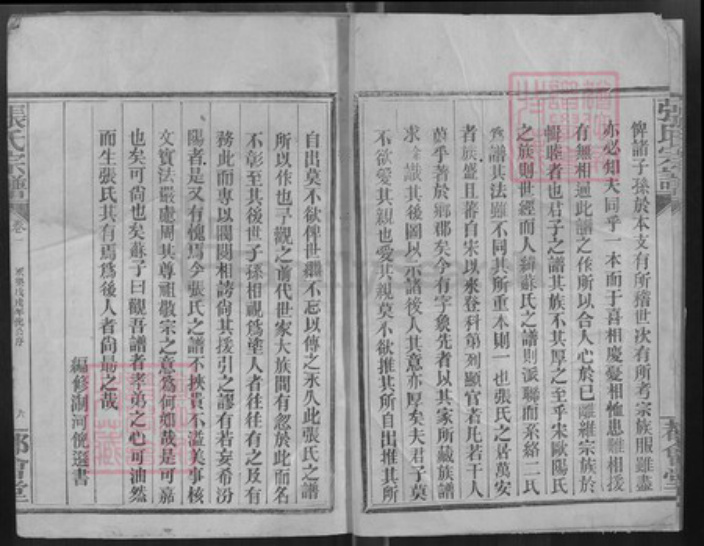 張氏宗譜
俾諸子孫於本支有所稽世次有所考宗族服雖盡
亦必知夫同乎一本而于喜相慶憂相恤患難相援
有無相通此譜之作所以合人心於已離維宗族於
輯睦者也君子之譜其族不其厚之至乎宋歐陽氏
之族則世經而人緯蘇氏之譜則派聯而系絡二氏
為譜其法雖不同其所重本則一也張氏之居萬安
者族盛且蕃自宋以來登科第列顯官者凡若干人
蔚乎著於鄉郡矣今有字象先者以其家所藏族譜
求余識其後圖以示諸後人其意亦厚矣夫君子莫
不欲愛其親也愛其親莫不欲推其所自出推其所
都會堂
自出莫不欲俾世繼不忘以傳之永久此張氏之譜
所以作也予觀之前代世家大族間有忽於此而名
不彰至其後世子孫相視為塗人者往往有之及有
務此而專以閥閱相誇尚其援引之謬有若妄希汾
陽者是又有愧焉今張氏之譜不挾貴不溢美事核
文實法嚴慮周其尊祖敬宗之意為何如哉是可嘉
也矣可尚也矣蘇子曰觀吾譜者孝弟之心可油然
而生張氏其有焉為後人者尚勗之哉
編修湖河倪選書
張氏宗譜
卷一
六
都會堂